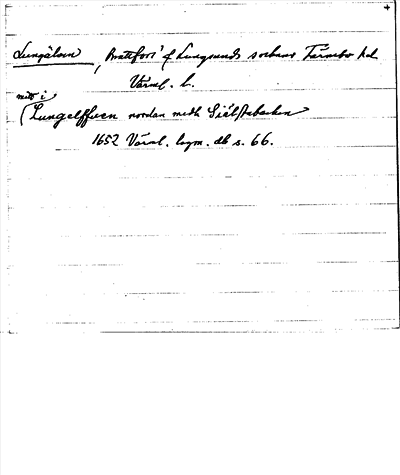 Lungälven, Brattfors' o Lungsunds socknar Färnebo hd.
Värml. l.
mitt i
(Lungelffuen nordan medh Siälstabacken
1652 Värml. lagm. db s. 66.